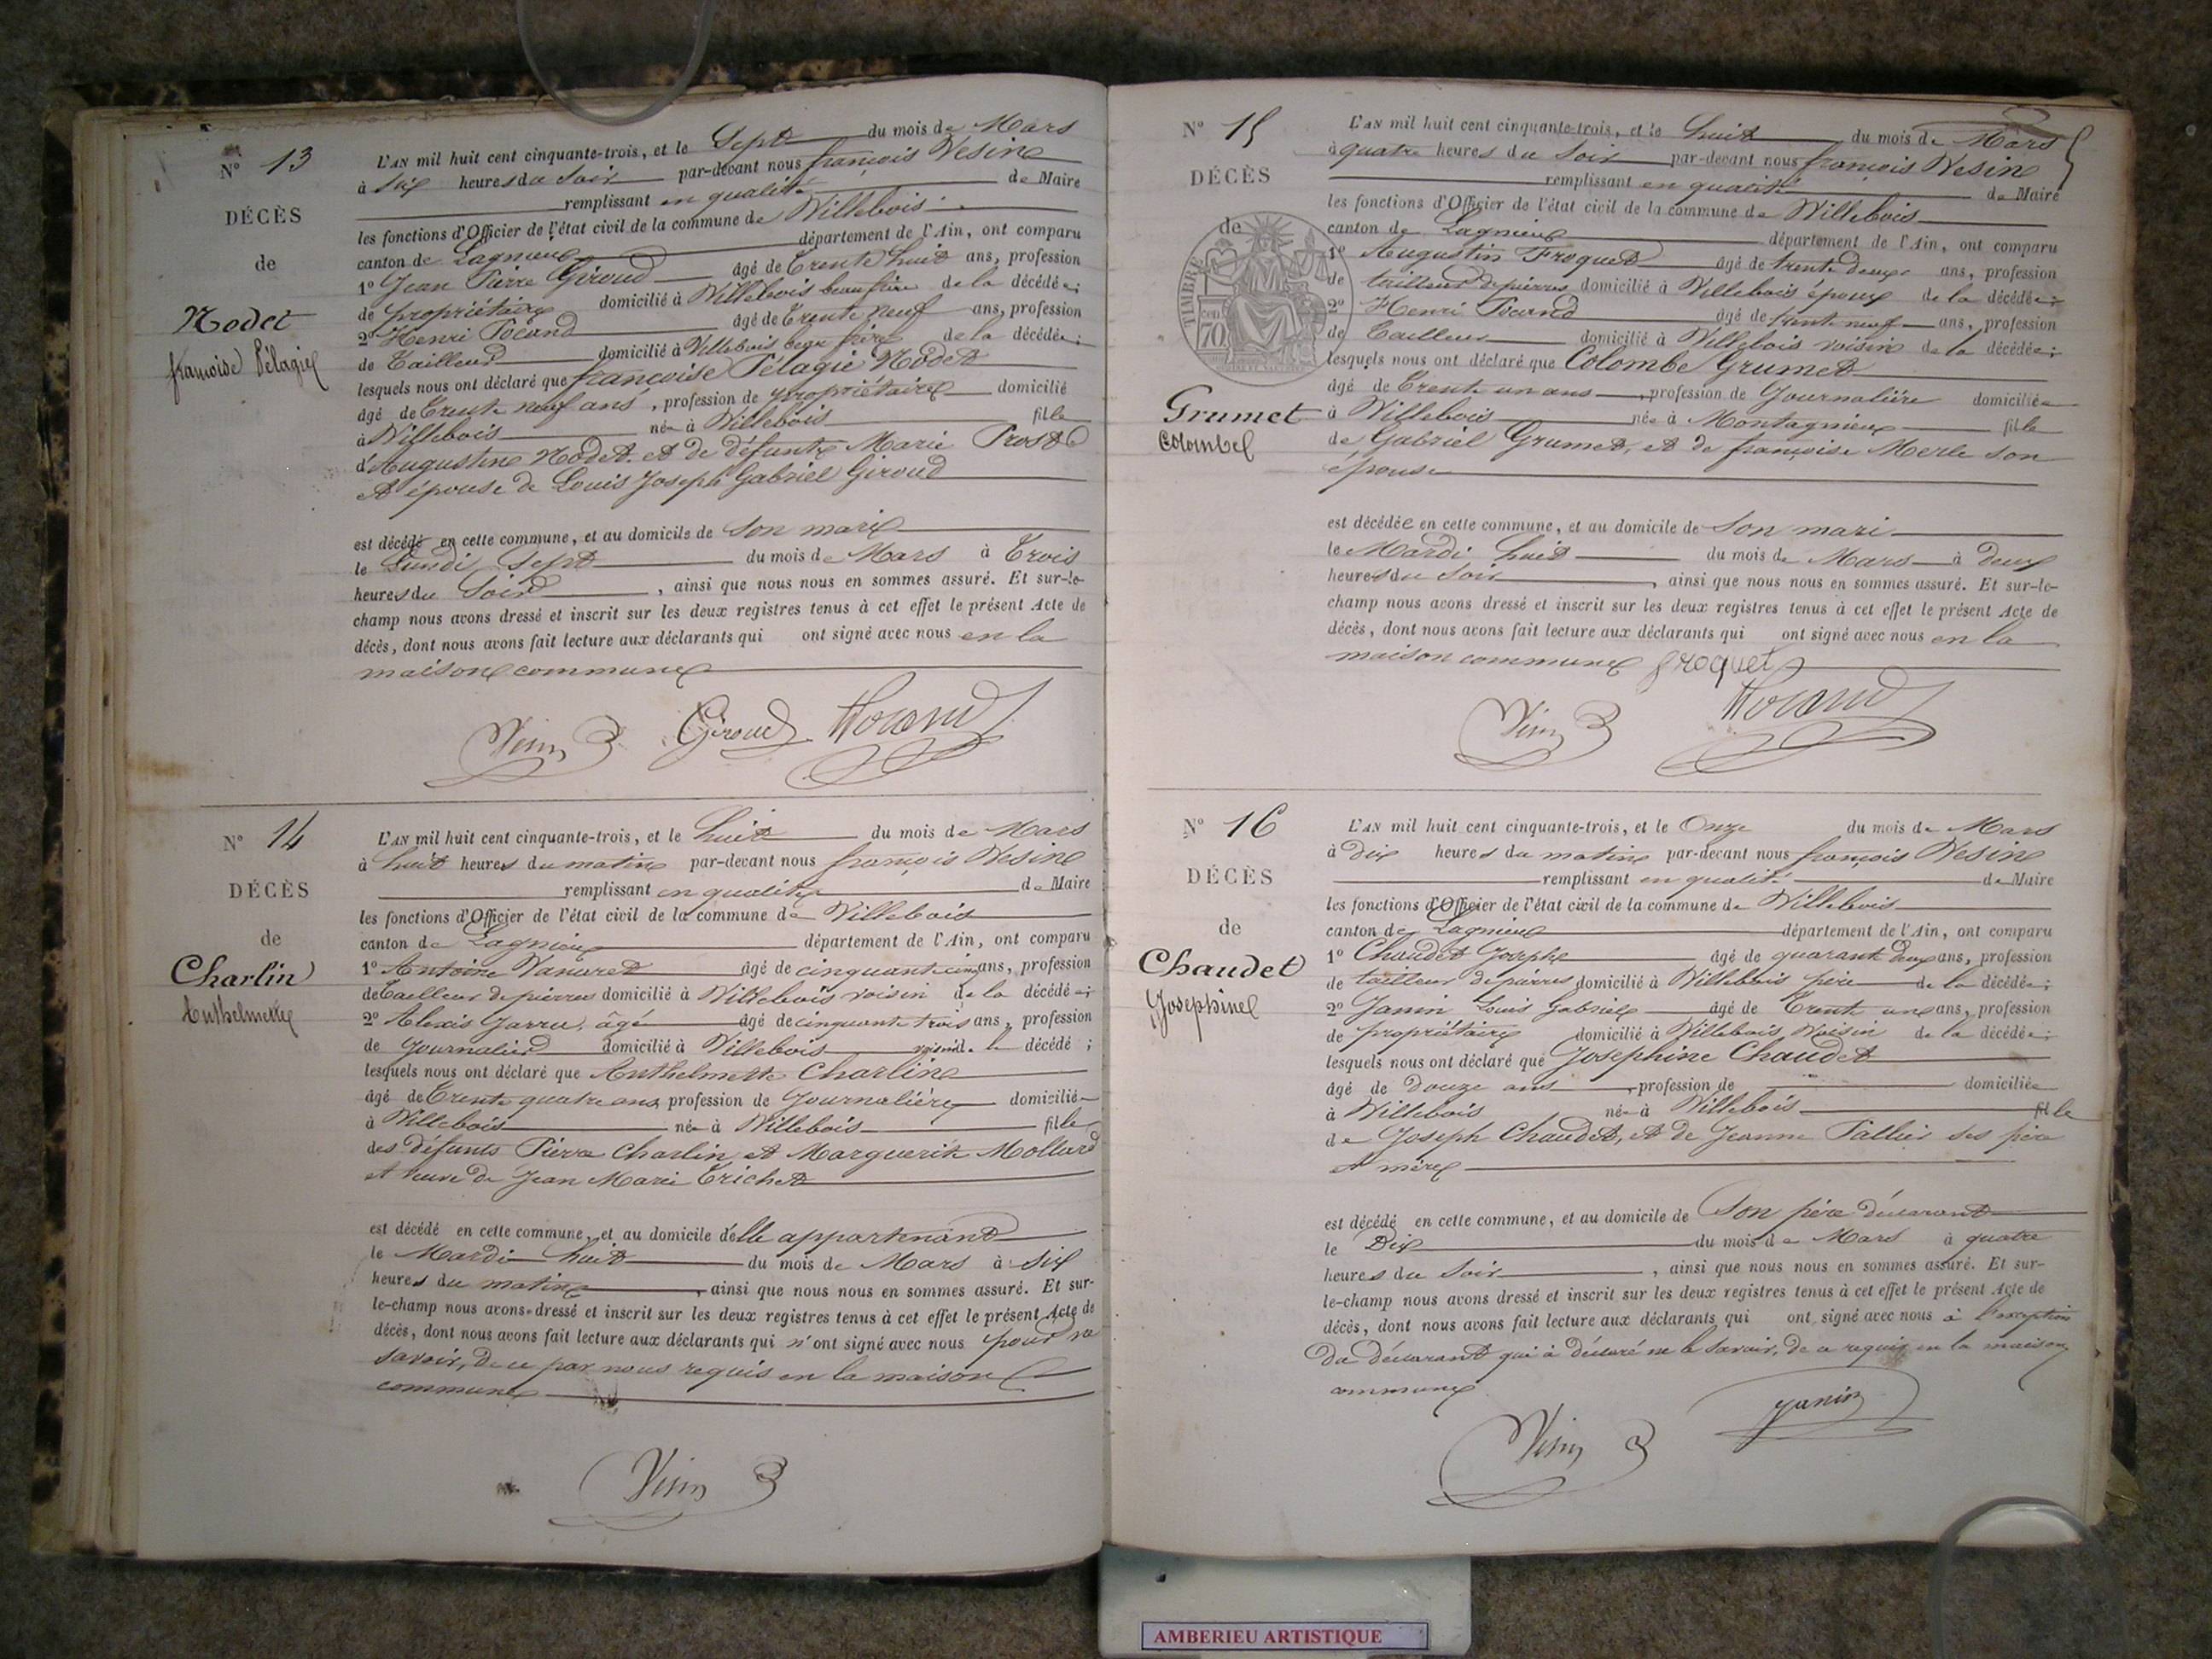 N° 13
DÉCÈS
de
Nodet
françoise Pélagie
L'AN mil huit cent cinquante-trois, et le Sept du mois de Mars
à Six heures du Soir par-devant nous françois Vesin
remplissant en qualité de Maire
les fonctions d'Officier de l'état civil de la commune de Villebois
canton de Lagnieu département de l'Ain, ont comparu
1° Jean Pierre Giroud âgé de trente huit ans, profession
de propriétaire domicilié à Villebois beau frère de la décédée;
2° Henri Pocand âgé de trente neuf ans, profession
de Tailleur domicilié à Villebois beau frère de la décédée;
lesquels nous ont déclaré que françoise Pélagie Nodet
âgé de Trente neuf ans, profession de propriétaire domicilié
à Villebois née à Villebois fille
d'Augustin Nodet et de défunte Marie Prost
et épouse de Louis Joseph Gabriel Giroud
est décédé en cette commune, et au domicile de Son mari
le Lundi Sept du mois de Mars à Trois
heures du Soir, ainsi que nous nous en sommes assuré. Et sur-le-
champ nous avons dressé et inscrit sur les deux registres tenus à cet effet le présent Acte de
décès, dont nous avons fait lecture aux déclarants qui ont signé avec nous en la
maison commune
Vesin Giroud Pocand
N° 14
DÉCÈS
de
Charlin
Anthelmette
L'AN mil huit cent cinquante-trois, et le huit du mois de Mars
à huit heures du matin par-devant nous françois Vesin
remplissant en qualité de Maire
les fonctions d'Officier de l'état civil de la commune de Villebois
canton de Lagnieu département de l'Ain, ont comparu
1° Antoine Vanaret âgé de cinquante cinq ans, profession
de Tailleur de pierres domicilié à Villebois voisin de la décédée;
2° Alexis Jarru, âgé âgé de cinquante trois ans, profession
de Journalier domicilié à Villebois voisin de la décédé;
lesquels nous ont déclaré que Anthelmette Charlin
âgé de Trente quatre ans, profession de Journalière domiciliée
à Villebois née à Villebois fille
des défunts Pierre Charlin et Marguerite Mollard
et veuve de Jean Marie Trichet
est décédé en cette commune, et au domicile d'elle appartenant
le Mardi huit du mois de Mars à Six
heures du matin, ainsi que nous nous en sommes assuré. Et sur-
le-champ nous avons dressé et inscrit sur les deux registres tenus à cet effet le présent Acte de
décès, dont nous avons fait lecture aux déclarants qui n'ont signé avec nous pour ne
savoir, de ce par nous requis en la maison
commune
Vesin
N° 15
DÉCÈS
de
TIMBRE
70
Grumet
Colombe
L'AN mil huit cent cinquante-trois, et le huit du mois de Mars
à quatre heures du Soir par-devant nous françois Vesin
remplissant en qualité de Maire
les fonctions d'Officier de l'état civil de la commune de Villebois
canton de Lagnieu département de l'Ain, ont comparu
1° Augustin Froquet âgé de trente deux ans, profession
de tailleur de pierres domicilié à Villebois époux de la décédée;
2° Henri Pocand âgé de trente neuf ans, profession
de Tailleur domicilié à Villebois voisin de la décédée;
lesquels nous ont déclaré que Colombe Grumet
âgé de Trente un ans, profession de Journalière domiciliée
à Villebois née à Montagnieu fille
de Gabriel Grumet, et de françoise Merle son
épouse
est décédée en cette commune, et au domicile de Son mari
le Mardi huit du mois de Mars à deux
heures du Soir, ainsi que nous nous en sommes assuré. Et sur-le-
champ nous avons dressé et inscrit sur les deux registres tenus à cet effet le présent Acte de
décès, dont nous avons fait lecture aux déclarants qui ont signé avec nous en la
maison commune froquet
Vesin Pocand
N° 16
DÉCÈS
de
Chaudet
Josephine
L'AN mil huit cent cinquante-trois, et le Onze du mois de Mars
à dix heures du matin par-devant nous françois Vesin
remplissant en qualité de Maire
les fonctions d'Officier de l'état civil de la commune de Villebois
canton de Lagnieu département de l'Ain, ont comparu
1° Chaudet Joseph âgé de quarante deux ans, profession
de tailleur de pierres domicilié à Villebois père de la décédée;
2° Janin Louis Gabriel âgé de Trente un ans, profession
de propriétaire domicilié à Villebois Voisin de la décédée;
lesquels nous ont déclaré que Josephine Chaudet
âgé de douze ans, profession de domiciliée
à Villebois née à Villebois fille
de Joseph Chaudet, et de Jeanne Pallier ses père
et mère
est décédé en cette commune, et au domicile de Son père déclarant
le Dix du mois de Mars à quatre
heures du Soir, ainsi que nous nous en sommes assuré. Et sur-
le-champ nous avons dressé et inscrit sur les deux registres tenus à cet effet le présent Acte de
décès, dont nous avons fait lecture aux déclarants qui ont signé avec nous à l'exception
du déclarant qui à déclaré ne le savoir, de ce requis en la maison
commune
Vesin Janin
AMBERIEU ARTISTIQUE